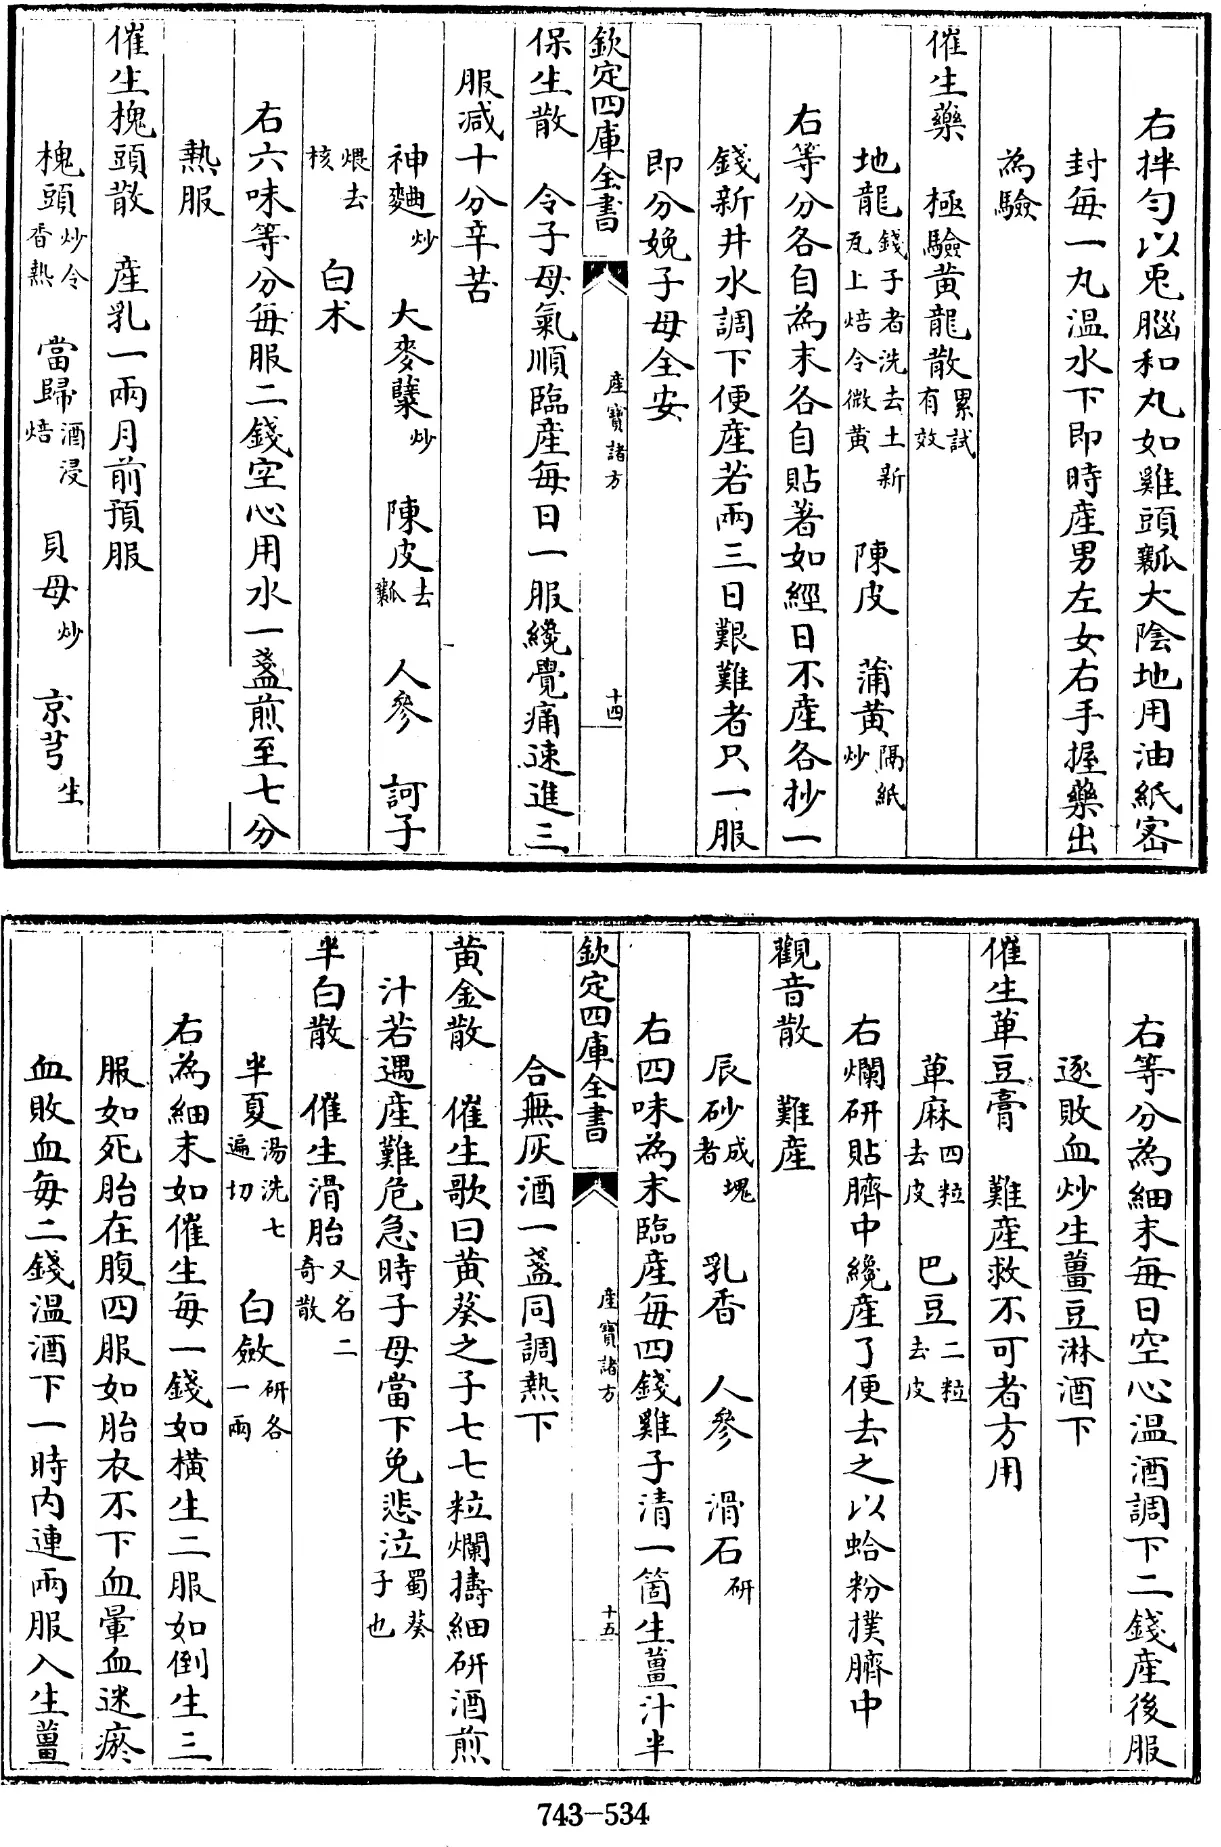 右拌勻以兎腦和丸如雞頭瓤大陰地用油紙宻
封每一丸温水下即時產男左女右手握藥出
為驗
催生藥　極驗黄龍散累試有效
地龍錢子者洗去土新瓦上焙令微黄　陳皮　蒲黄隔紙炒
右等分各自為末各自貼著如經日不產各抄一
錢新井水調下便產若兩三日艱難者只一服
即分娩子母全安
欽定四庫全書　產寶諸方　十四
保生散　令子母氣順臨產每日一服纔覺痛速進三
服减十分辛苦
神麯炒　大麥糵炒　陳皮去瓤　人參　訶子
煨去核　白术
右六味等分每服二錢空心用水一盞煎至七分
熱服
催生槐頭散　產乳一兩月前預服
槐頭炒令香熟　當歸酒浸焙　貝母炒　京芎生
右等分為細末每日空心温酒調下二錢產後服
逐敗血炒生薑豆淋酒下
催生萆豆膏　難產救不可者方用
萆麻四粒去皮　巴豆二粒去皮
右爛研貼臍中纔產了便去之以蛤粉撲臍中
觀音散　難產
辰砂成塊者　乳香　人參　滑石研
右四味為末臨產每四錢雞子清一箇生薑汁半
欽定四庫全書　產寶諸方　十五
合無灰酒一盞同調熱下
黄金散　催生歌曰黄葵之子七七粒爛擣細研酒煎
汁若遇產難危急時子母當下免悲泣蜀葵子也
半白散　催生滑胎又名二奇散
半夏湯洗七遍切　白斂研各一兩
右為細末如催生每一錢如橫生二服如倒生三
服如死胎在腹四服如胎衣不下血暈血迷瘀
血敗血每二錢温酒下一時内連兩服入生薑
743-534